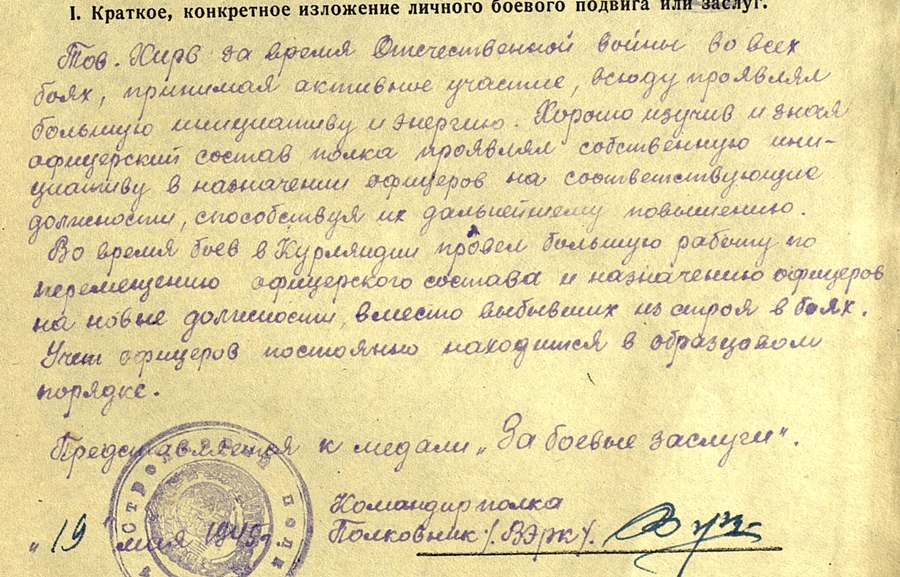 I. Краткое, конкретное изложение личного боевого подвига или заслуг.
Тов. Хирв за время Отечественной войны во всех
боях, принимая активное участие, всюду проявлял
большую инициативу и энергию. Хорошо изучив и зная
офицерский состав полка проявлял собственную ини-
циативу в назначении офицеров на соответствующие
должности, способствуя их дальнейшему повышению.
Во время боев в Курляндии провел большую работу по
перемещению офицерского состава и назначению офицеров
на новые должности, вместо выбывших из строя в боях.
Учет офицеров постоянно находится в образцовом
порядке.
Представляется к медали „За боевые заслуги".
Командир полка
Полковник /. Вэрк /.
„19 мая 1945г